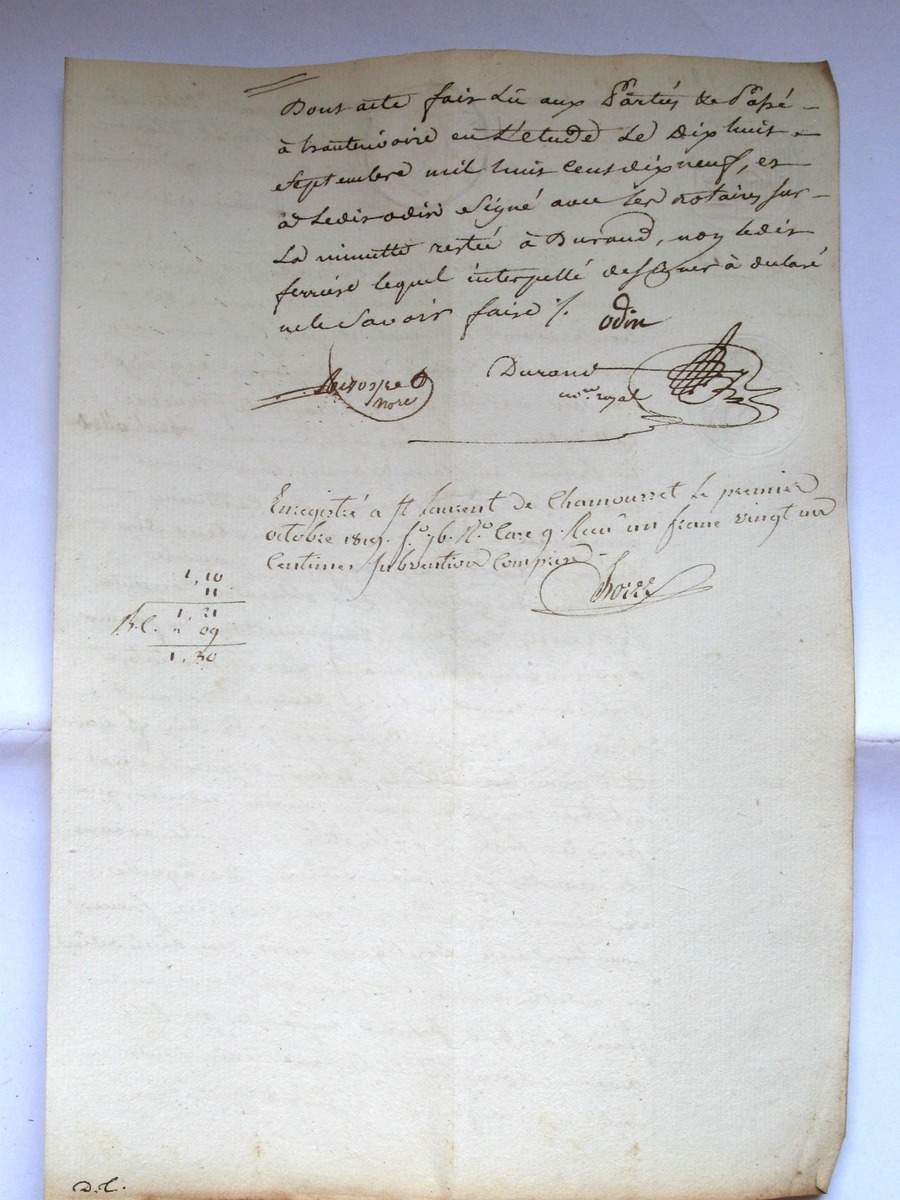 Dont acte fait Lû aux Parties & Passé
à hauterivoire en L'étude Le Dix huit
septembre mil huit cent dix neuf, et
à Ledit odin signé avec Les notaires sur
La minutte restée à Durand, non ledit
ferriere lequel interpellé de signer à declaré
ne le savoir faire %.
odin
nore
Durand
nore royal
Enregistré a St Laurent de Chamousset Le premier
octobre 1819. fo 76. Ro Case 9. Recu un franc vingt un
Centimes subvention Comprise
1,10
11
1,21
R.C. " 09
1,30
D.C.